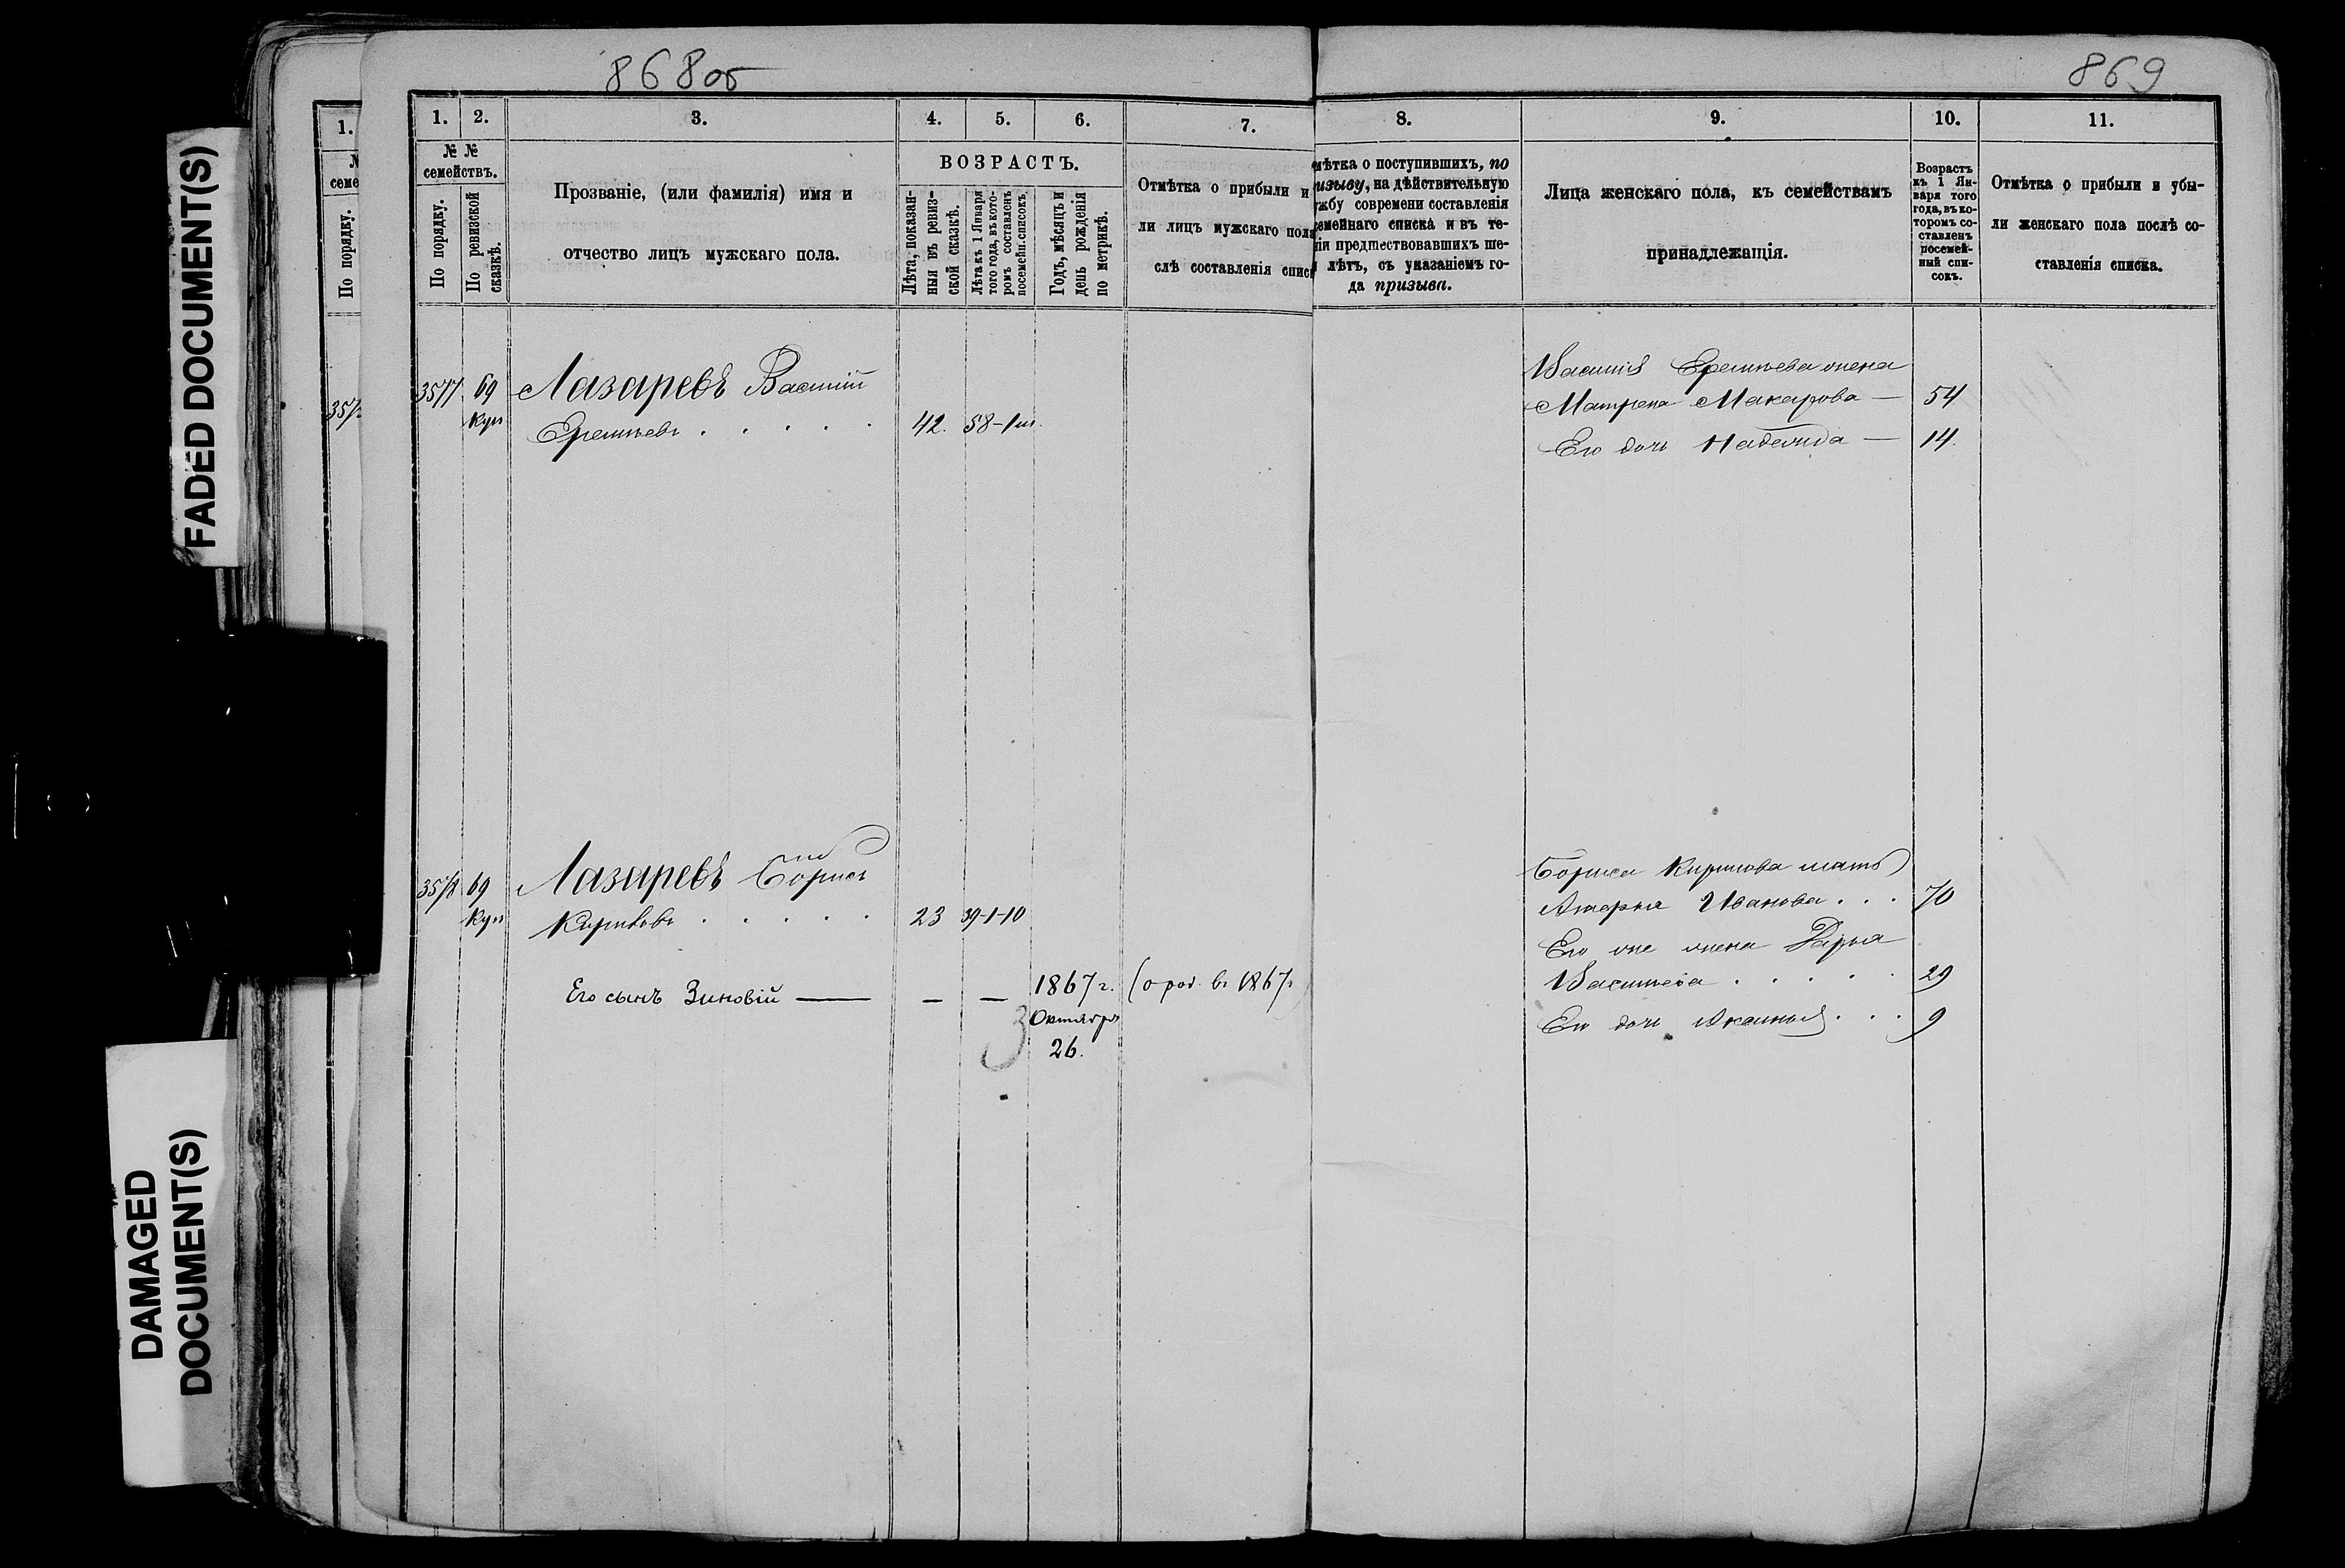 868об
869
FADED DOCUMENT(S)
DAMAGED
DOCUMENT(S)
1.
По порядку.
1. 2. 3. 4. 5. 6. 7. 8. 9. 10. 11.
№ №
семействъ.
По порядку.
По ревизской
сказкѣ.
Прозваніе, (или фамилія) имя и
отчество лицъ мужскаго пола.
ВОЗРАСТЪ.
Лѣта, показан-
ныя въ ревиз-
ской сказкѣ.
Лѣта къ 1 Января
того года, въ кото-
ромъ составленъ
посемейн. списокъ.
Годъ, мѣсяцъ и
день рожденія
по метрикѣ.
Отмѣтка о прибыли и
ли лицъ мужскаго пола
слѣ составленія спис
мѣтка о поступившихъ, по
изыву, на дѣйствительную
жбу современи составленія
семейнаго списка и въ те-
ніи предшествовавшихъ ше-
лѣтъ, съ указаніемъ го-
да призыва.
Лица женскаго пола, къ семействамъ
принадлежащія.
Возрастъ
къ 1 Ян-
варя того
года, въ ко-
торомъ со-
ставленъ
посемей-
ный спи-
сокъ.
Отмѣтка о прибыли и убы-
ли женскаго пола послѣ со-
ставленія списка.
3577 69 Лазаревъ Василій
Куп Еремѣевъ . . . . . 42. 58-1 м.
Василія Еремѣева жена
Матрена Макарова — 54
Его дочь Надежда — 14.
3578 69 Лазаревъ Борисъ
Куп Кириловъ . . . . . 23 39-1-10
Его сынъ Зиновій — — — 1867 г. (о род. въ 1867 г
Октября
26.
3
Бориса Кирилова мать
Ивановa . . . 70
Его же жена Дарья
Васильева . . . . . 29
Его дочь Аксинья . . . 9